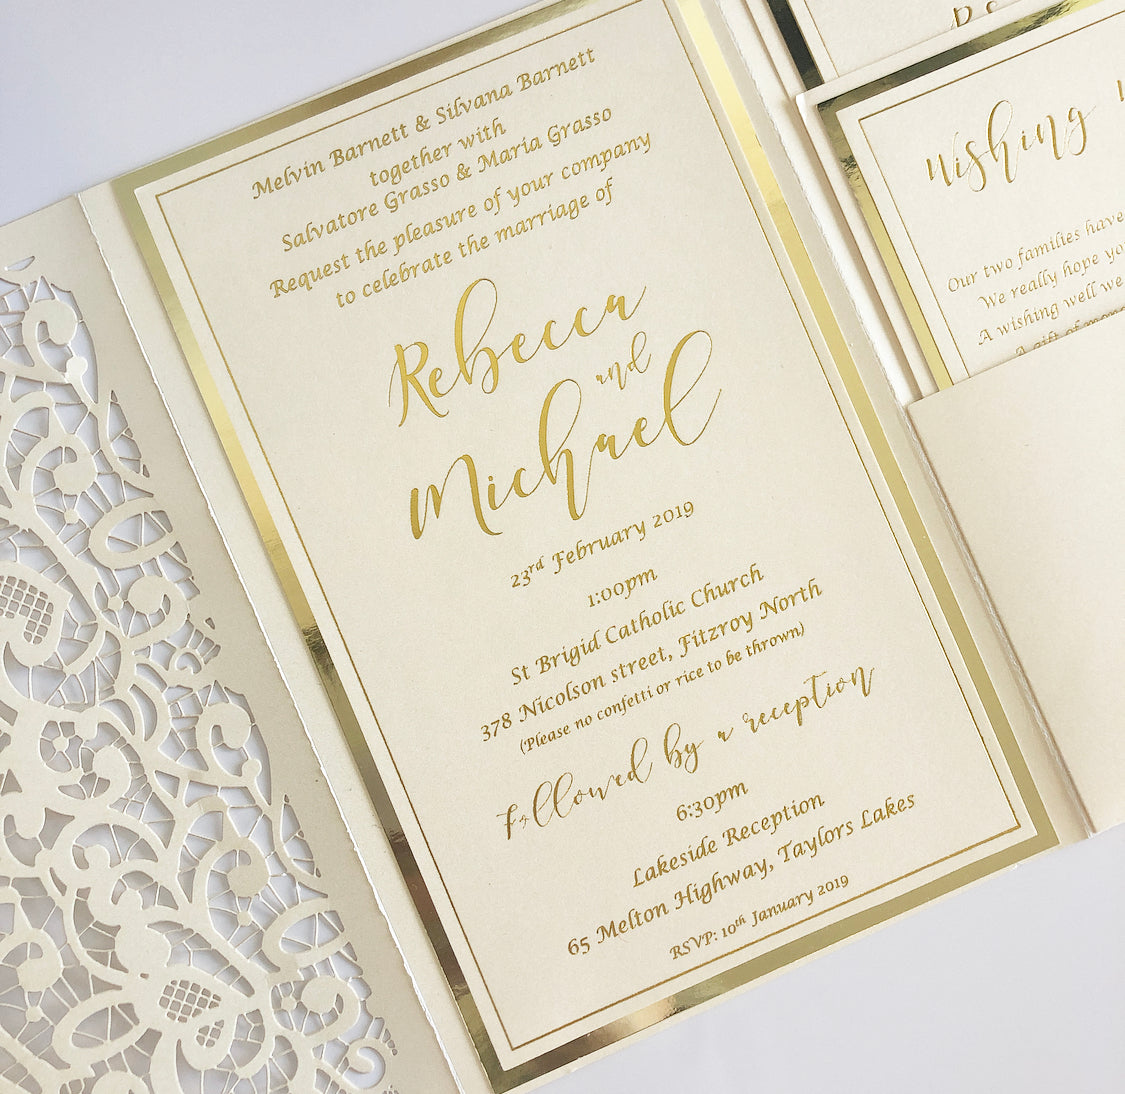 Melvin Barnett & Silvana Barnett
together with
Salvatore Grasso & Maria Grasso
Request the pleasure of your company
to celebrate the marriage of
Rebecca
and
Michael
23rd February 2019
1:00pm
St Brigid Catholic Church
378 Nicolson street, Fitzroy North
(Please no confetti or rice to be thrown)
Followed by a reception
6:30pm
Lakeside Reception
65 Melton Highway, Taylors Lakes
RSVP: 10th January 2019
Wishing
Our two families have
We really hope yo
A wishing well we
A gift of mone